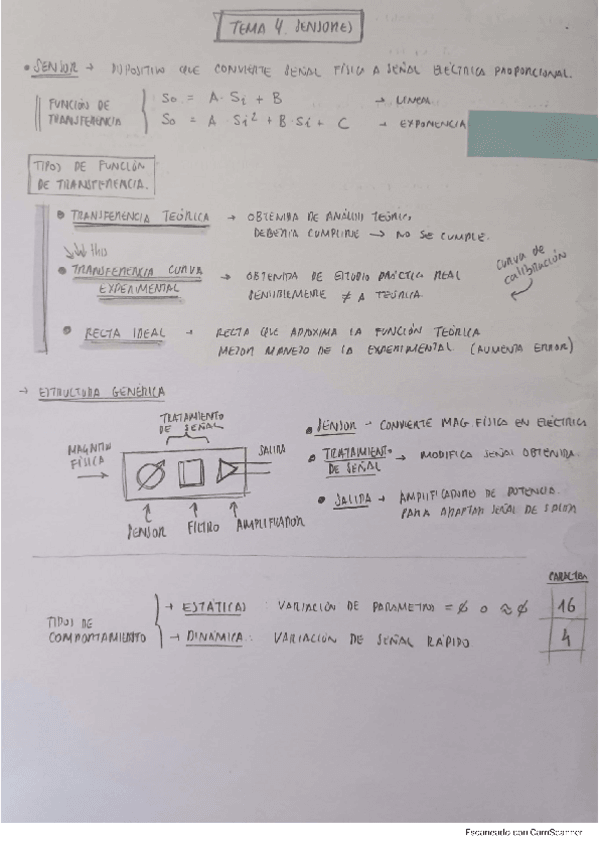 TEMA 4. SENSORES
• SENSOR → DISPOSITIVO QUE CONVIERTE SEÑAL FÍSICA A SEÑAL ELÉCTRICA PROPORCIONAL.
FUNCIÓN DE TRANSFERENCIA
So = A · Si + B → LINEAL
So = A · Si² + B · Si + C → EXPONENCIA
TIPOS DE FUNCIÓN
DE TRANSFERENCIA.
• TRANSFERENCIA TEÓRICA → OBTENIDA DE ANÁLISIS TEÓRICO,
DEBERÍA CUMPLIRSE → NO SE CUMPLE.
this
• TRANSFERENCIA CURVA → OBTENIDA DE ESTUDIO PRÁCTICO REAL
EXPERIMENTAL SENSIBLEMENTE ≠ A TEÓRICA.
curva de
calibración
• RECTA IDEAL → RECTA QUE APROXIMA LA FUNCIÓN TEÓRICA
MEJOR MANEJO DE LA EXPERIMENTAL (AUMENTA ERROR)
→ ESTRUCTURA GENÉRICA
TRATAMIENTO
DE SEÑAL
MAGNITUD
FÍSICA
SALIDA
SENSOR FILTRO AMPLIFICADOR
• SENSOR → CONVIERTE MAG. FÍSICA EN ELÉCTRICA
• TRATAMIENTO → MODIFICA SEÑAL OBTENIDA.
DE SEÑAL
• SALIDA → AMPLIFICADORES DE POTENCIA.
PARA ADAPTAR SEÑAL DE SALIDA
TIPOS DE
COMPORTAMIENTO
→ ESTÁTICAS : VARIACIÓN DE PARAMETROS = ∅ o ≈ ∅
→ DINÁMICA : VARIACIÓN DE SEÑAL RÁPIDO
16
4
Escaneado con CamScanner